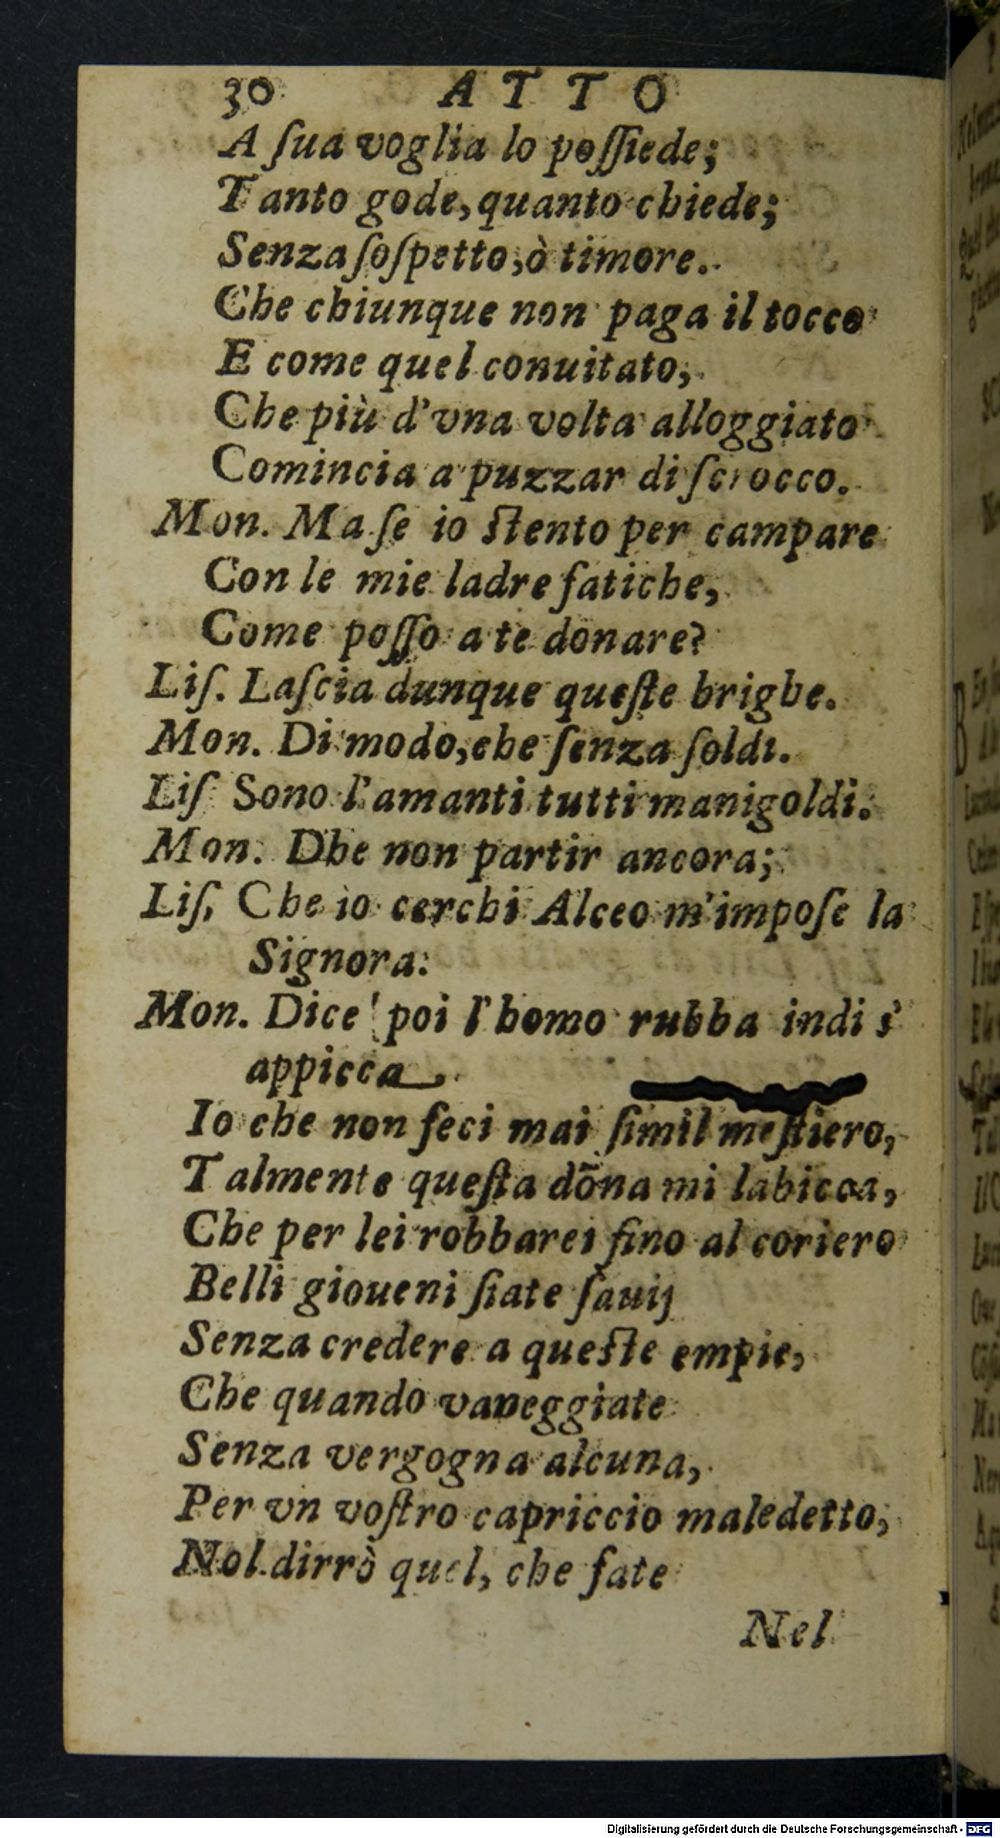 30 ATTO
A ſua voglia lo poſſiede;
Tanto gode, quanto chiede;
Senza ſoſpetto, ò timore.
Che chiunque non paga il tocco
E come quel conuitato,
Che più d'vna volta alloggiato
Comincia a puzzar di ſcrocco.
Mon. Ma ſe io ſtento per campare
Con le mie ladre fatiche,
Come poſſo a te donare?
Liſ. Laſcia dunque queſte brighe.
Mon. Di modo, che ſenza ſoldi.
Liſ Sono l'amanti tutti manigoldi.
Mon. Dhe non partir ancora;
Liſ. Che io cerchi Alceo m'impoſe la
Signora.
Mon. Dice poi l'homo rubba indi s'
appicca
Io che non feci mai ſimil meſtiero,
Talmente queſta dõna mi labicca,
Che per lei robbarei fino al coriero
Belli gioueni ſiate ſauij
Senza credere a queſte empie,
Che quando vaneggiate
Senza vergogna alcuna,
Per vn voſtro capriccio maledetto,
Nol dirrò quel, che fate
Nel
Digitalisierung gefördert durch die Deutsche Forschungsgemeinschaft - DFG